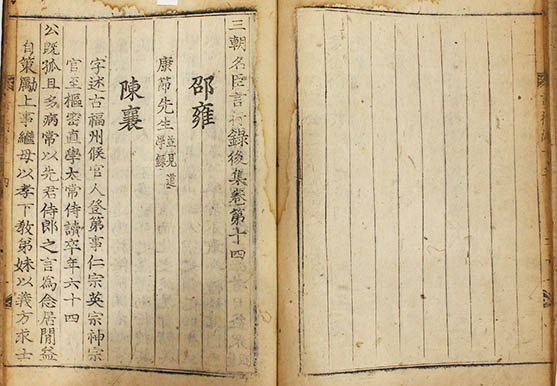 三朝名臣言行錄後集卷第十四
邵雍
康節先生並見道學錄
陳襄
字述古福州候官人登第事仁宗英宗神宗
官至樞密直學太常侍讀卒年六十四
公既孤且多病常以先君侍郎之言為念居閒益
自策勵上事繼母以孝下教弟妹以義方求士